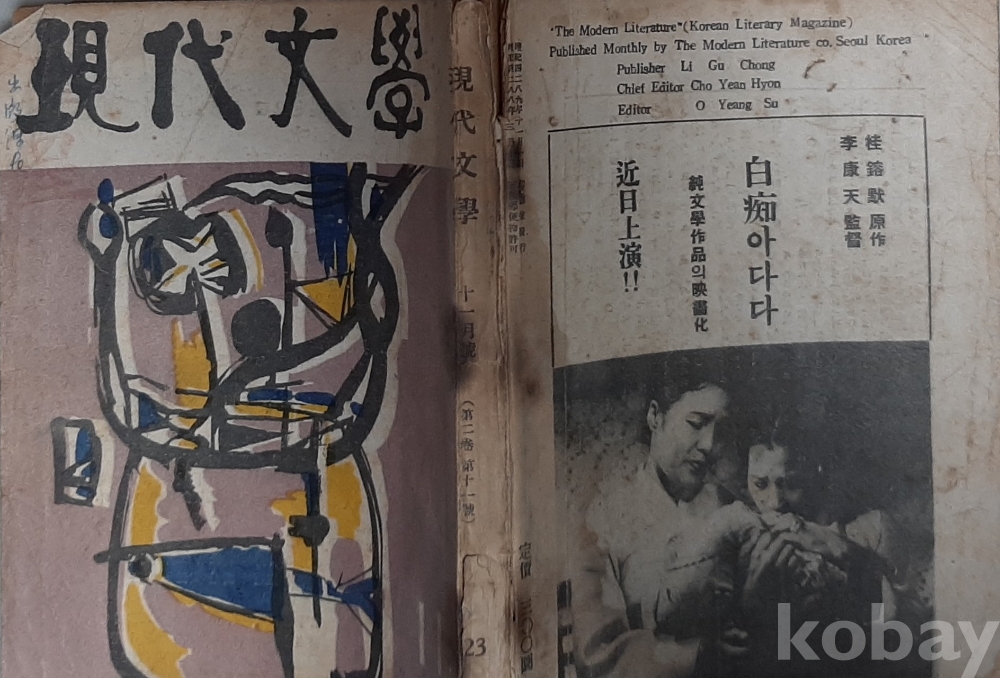 現代文學
現代文學 十一月號 (第二卷 第十一號)
23
定價 三〇〇圜
"The Modern Literature"(Korean Literary Magazine)
Published Monthly by The Modern Literature co. Seoul Korea
Publisher Li Gu Chong
Chief Editor Cho Yean Hyon
Editor O Yeang Su
桂鎔默 原作
李康天 監督
白痴아다다
純文學作品의 映畵化
近日上演!!
kobay